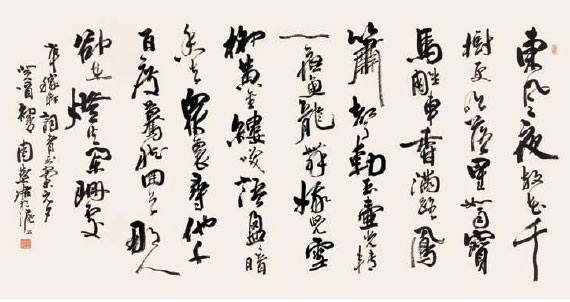 東風夜放花千
樹更吹落星如雨寶
馬雕車香滿路鳳
簫聲動玉壺光轉
一夜魚龍舞蛾兒雪
柳黃金縷笑語盈盈暗
香去眾裏尋他千
百度驀然回首那人
卻在燈火闌珊處
辛稼軒詞青玉案元夕
癸酉初夏周慧珺於滬上